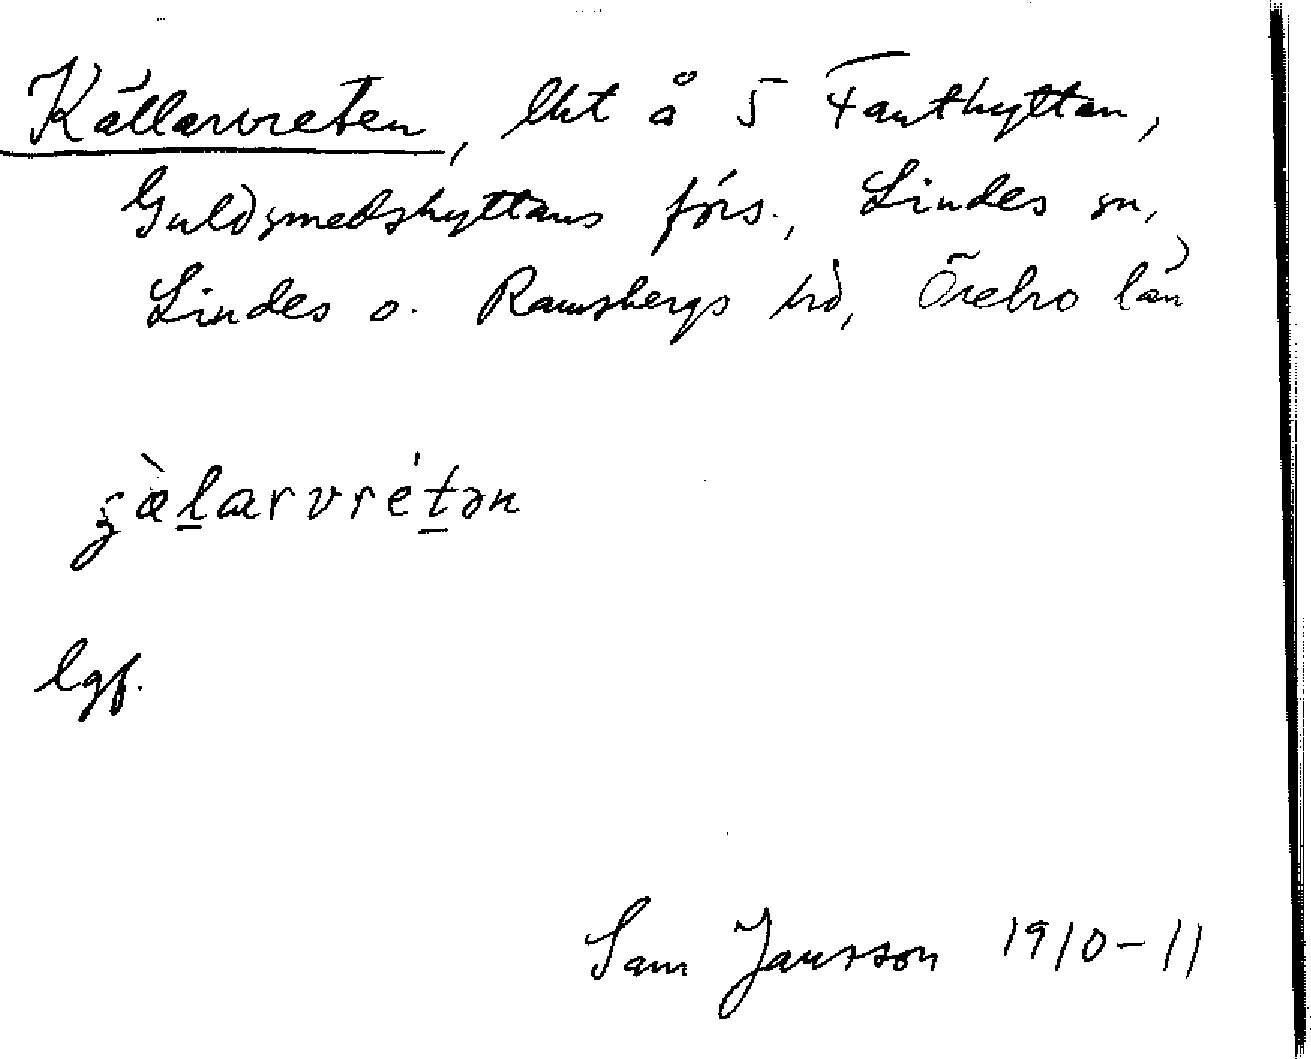 Källarvreten, lht å 5 Fanthyttan,
Guldsmedshyttans förs., Lindes sn,
Lindes o. Ramsbergs hd, Örebro län
lgf.
Sam Jansson 1910-11